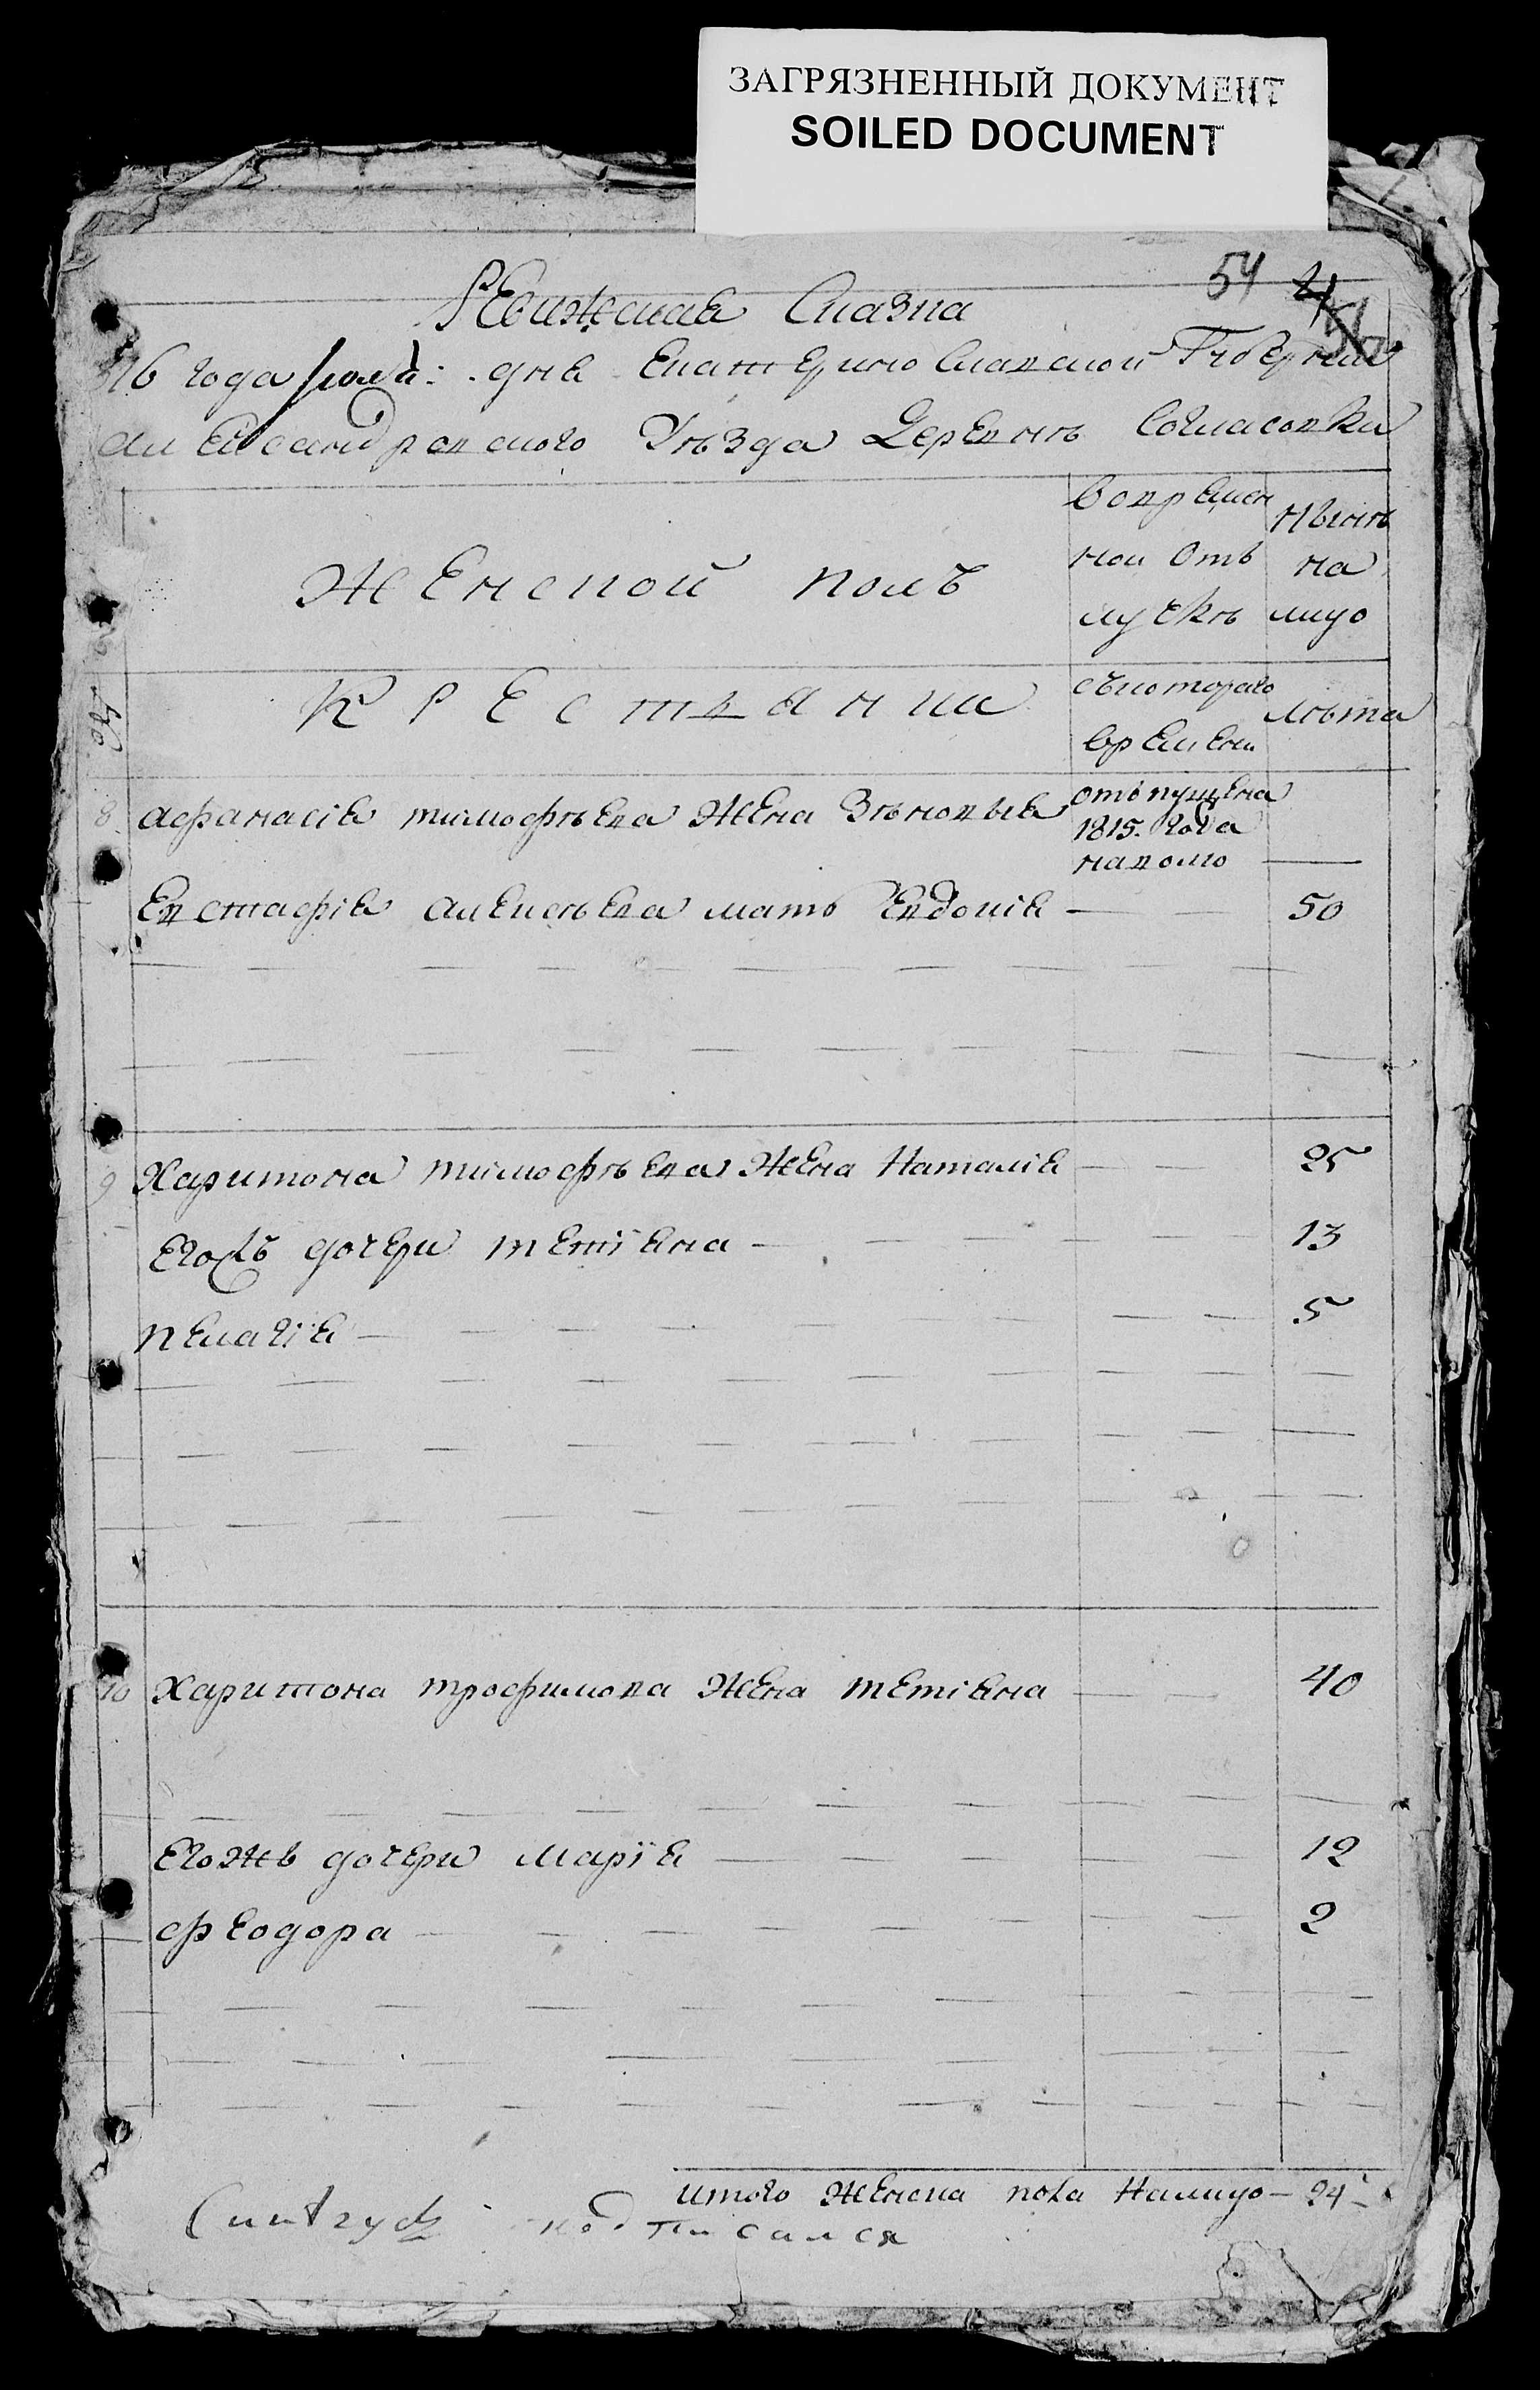 ЗАГРЯЗНЕННЫЙ ДОКУМЕНТ
SOILED DOCUMENT
54
Ревижская Сказка
816 года июля: дня Екатеринославской Губернии
александравского Уѣзда Деревнѣ Согласовки
Женской полъ
вовремен
ной отъ
лучкѣ
нынѣ
на
лицо
№
Крестьяни
съкотораго
времени
лѣта
8 афанасія тимофѣева жена Зѣновья
отъпущена
1815. года
наволю
Евстафія алексѣева мать Евдокія 50
9 Харитона тимофѣева жена Наталія 25
Егожъ дочери тетіяна 13
пелагія 5
10 Харитона трофимова жена тетіяна 40
Егожъ дочери марія 12
феодора 2
итого женска пола налицо 24
подписался